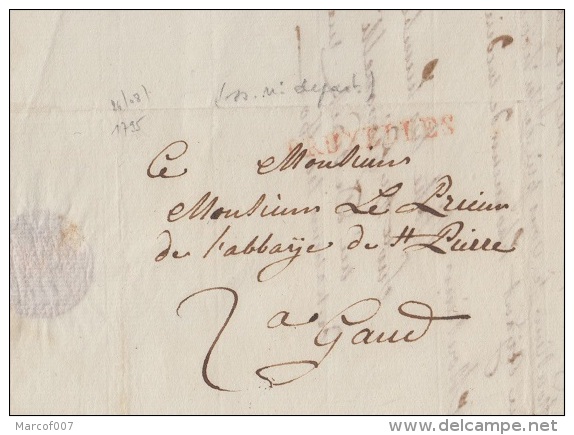 (ss. n° départ)
1795
BRUXELLES
Ce Monsieur
Monsieur Le Prieur
de l'abbaÿe de St Pierre
a Gand
Marcof007
www.delcampe.net